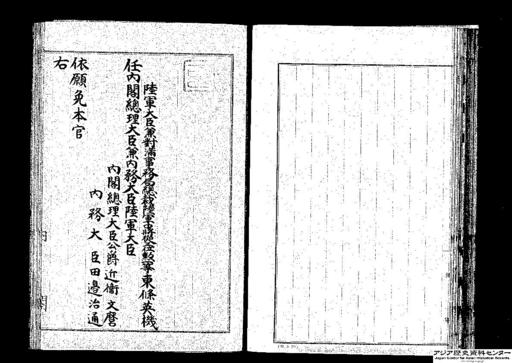 陸軍大臣兼對滿事務局總裁陸軍中將從三位勲一等東條英機
任內閣總理大臣兼內務大臣陸軍大臣
內閣總理大臣公爵近衞文麿
內務大臣田邊治通
依願免本官
右
アジア歴史資料センター
Japan Center for Asian Historical Records